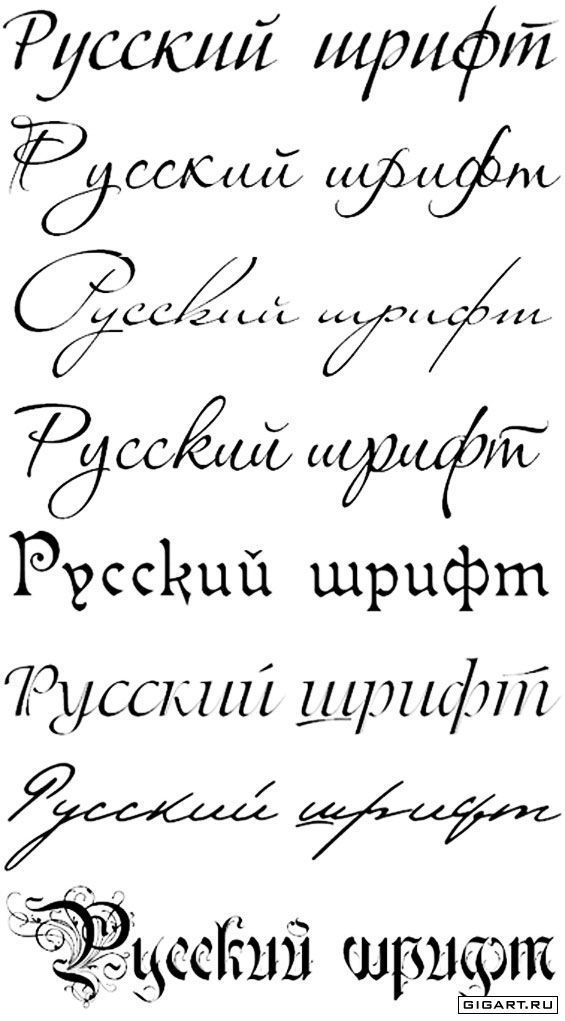 Русский шрифт
Русский шрифт
Русский шрифт
Русский шрифт
Русский шрифт
Русский шрифт
Русский шрифт
Русский шрифт
GIGART.RU